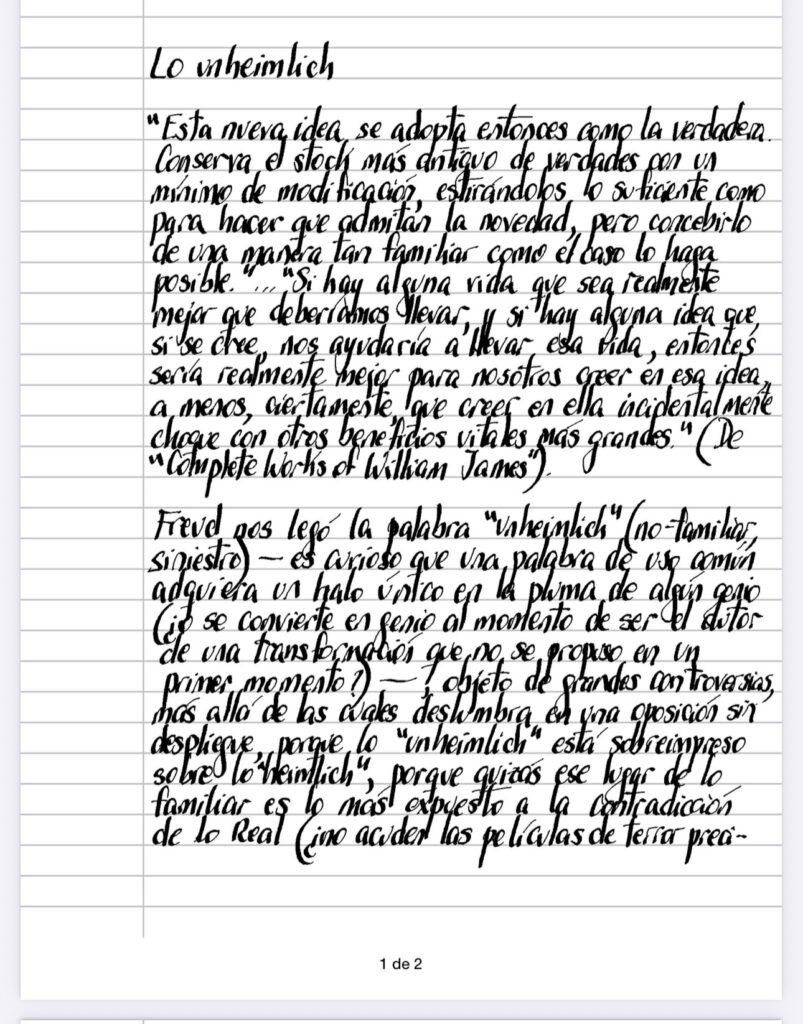 Lo unheimlich
"Esta nueva idea se adopta entonces como la verdadera.
Conserva el stock más antiguo de verdades con un
mínimo de modificación, estirándolos lo suficiente como
para hacer que admitan la novedad, pero concebirlo
de una manera tan familiar como el caso lo haga
posible."..."Si hay alguna vida que sea realmente
mejor que deberíamos llevar, y si hay alguna idea que,
si se cree, nos ayudaría a llevar esa vida, entonces
sería realmente mejor para nosotros creer en esa idea,
a menos, ciertamente, que creer en ella incidentalmente
choque con otros beneficios vitales más grandes." (De
"Complete Works of William James").
Freud nos legó la palabra "unheimlich" (no-familiar,
siniestro) — es curioso que una palabra de uso común
adquiera un halo único en la pluma de algún genio
(¿o se convierte en genio al momento de ser el autor
de una transformación que no se propuso en un
primer momento?) — , objeto de grandes controversias,
más allá de las cuales deslumbra en una oposición sin
despliegue, porque lo "unheimlich" está sobreimpreso
sobre lo "heimlich", porque quizás ese lugar de lo
familiar es lo más expuesto a la contradicción
de lo Real (¿no acuden las películas de terror preci-
1 de 2